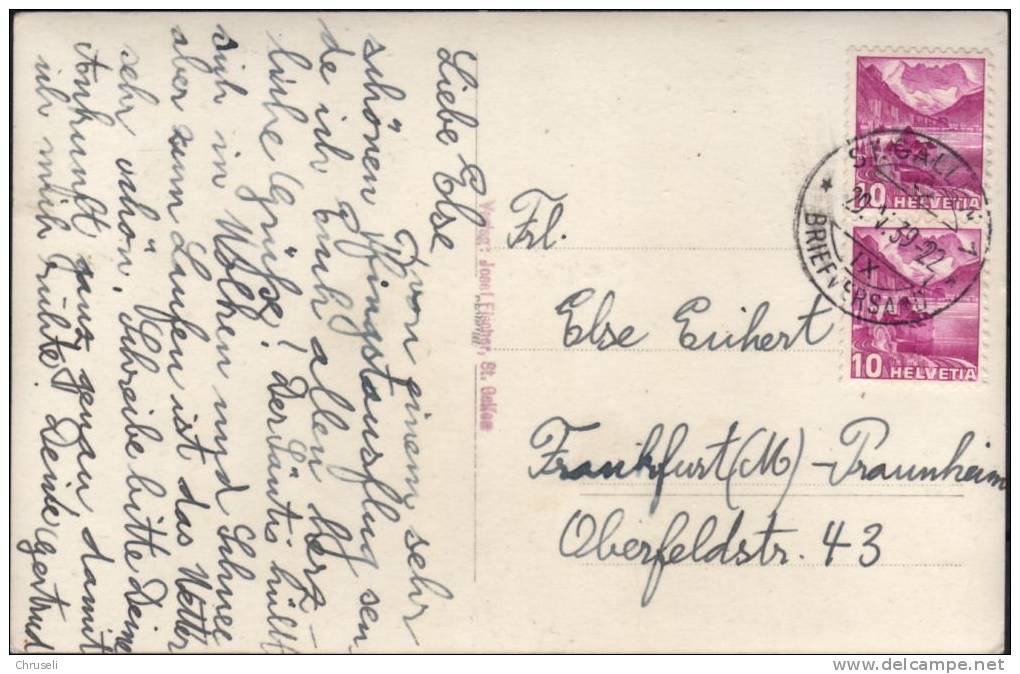 Liebe Else
Von einem sehr
schönen Pfingstausflug sen
de ich Euch allen herz-
liche Grüße! Der Säntis hüllt
sich in Wolken und Schnee
aber zum Laufen ist das Wetter
sehr schön. Schreibe bitte Deine
Ankunft ganz genau damit
ich mich richte. Deine Gertrud
Verlag: Josef Fischer, St. Gallen
Frl.
Else Eichert
Frankfurt (M) - Praunheim
Oberfeldstr. 43
10 HELVETIA
10 HELVETIA
ST. GALLEN
29. V. 39-22
IX
BRIEFVERSAND
Chruseli
www.delcampe.net